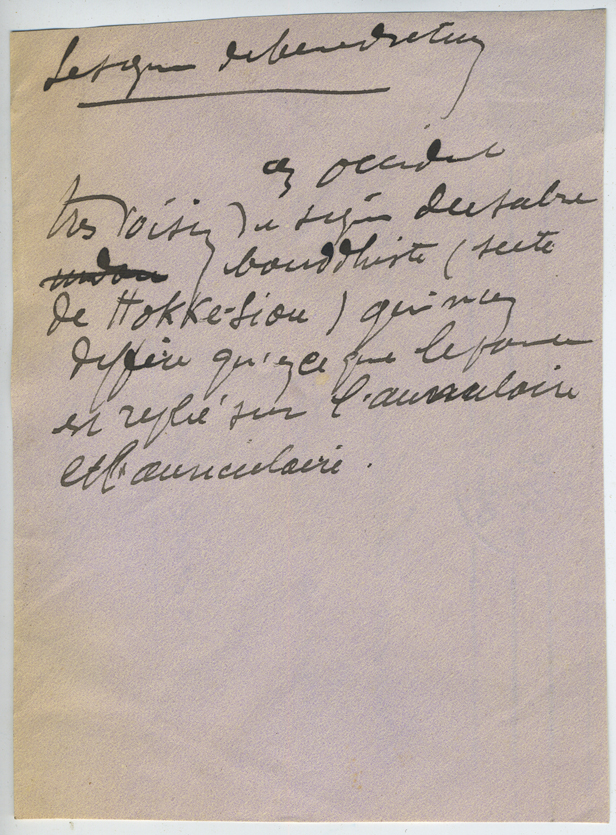 Le signe de bénédiction
en occident
très voisin du signe du sabre
bouddhiste (secte
de Hokke-siou) qui n'en
diffère qu'en ce que le pouce
est replié sur l'annulaire
et l'auriculaire.